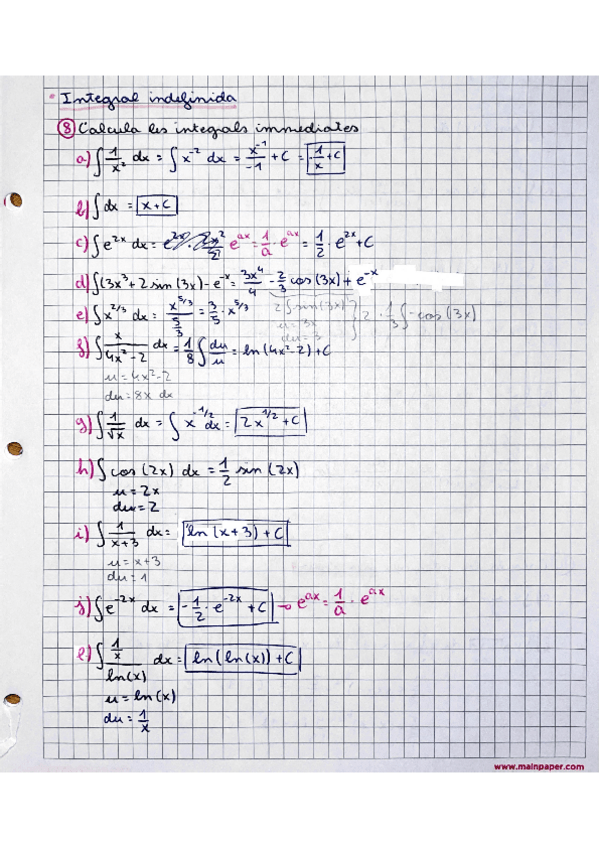 • Integral indefinida
8 Calcula les integrals immediates
a) ∫ 1/x² dx = ∫ x⁻² dx = x⁻¹/-1 + C = -1/x + C
b) ∫ dx = x + C
c) ∫ e^2x dx = e^ax = 1/a · e^ax = 1/2 · e^2x + C
d) ∫(3x³ + 2 sin (3x) - e^-x = 3x⁴/4 - 2/3 cos (3x) + e^-x
e) ∫ x^2/3 dx = x^5/3 / 5/3 = 3/5 · x^5/3
2∫ sin(3x)
u = 3x
du = 3
2 · 1/3 ∫ - cos (3x)
f) ∫ x/4x²-2 dx = 1/8 ∫ du/u = ln (4x²-2) + C
u = 4x²-2
du = 8x dx
g) ∫ 1/√x dx = ∫ x^-1/2 dx = 2x^1/2 + C
h) ∫ cos (2x) dx = 1/2 sin (2x)
u = 2x
du = 2
i) ∫ 1/x+3 dx = ln (x+3) + C
u = x+3
du = 1
j) ∫ e^-2x dx = -1/2 · e^-2x + C → e^ax = 1/a · e^ax
l) ∫ 1/x / ln(x) dx = ln (ln(x)) + C
u = ln (x)
du = 1/x
www.mainpaper.com